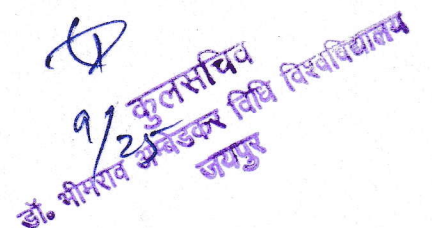 9/25
कुलसचिव
डॉ. भीमराव अम्बेडकर विधि विश्वविद्यालय
जयपुर